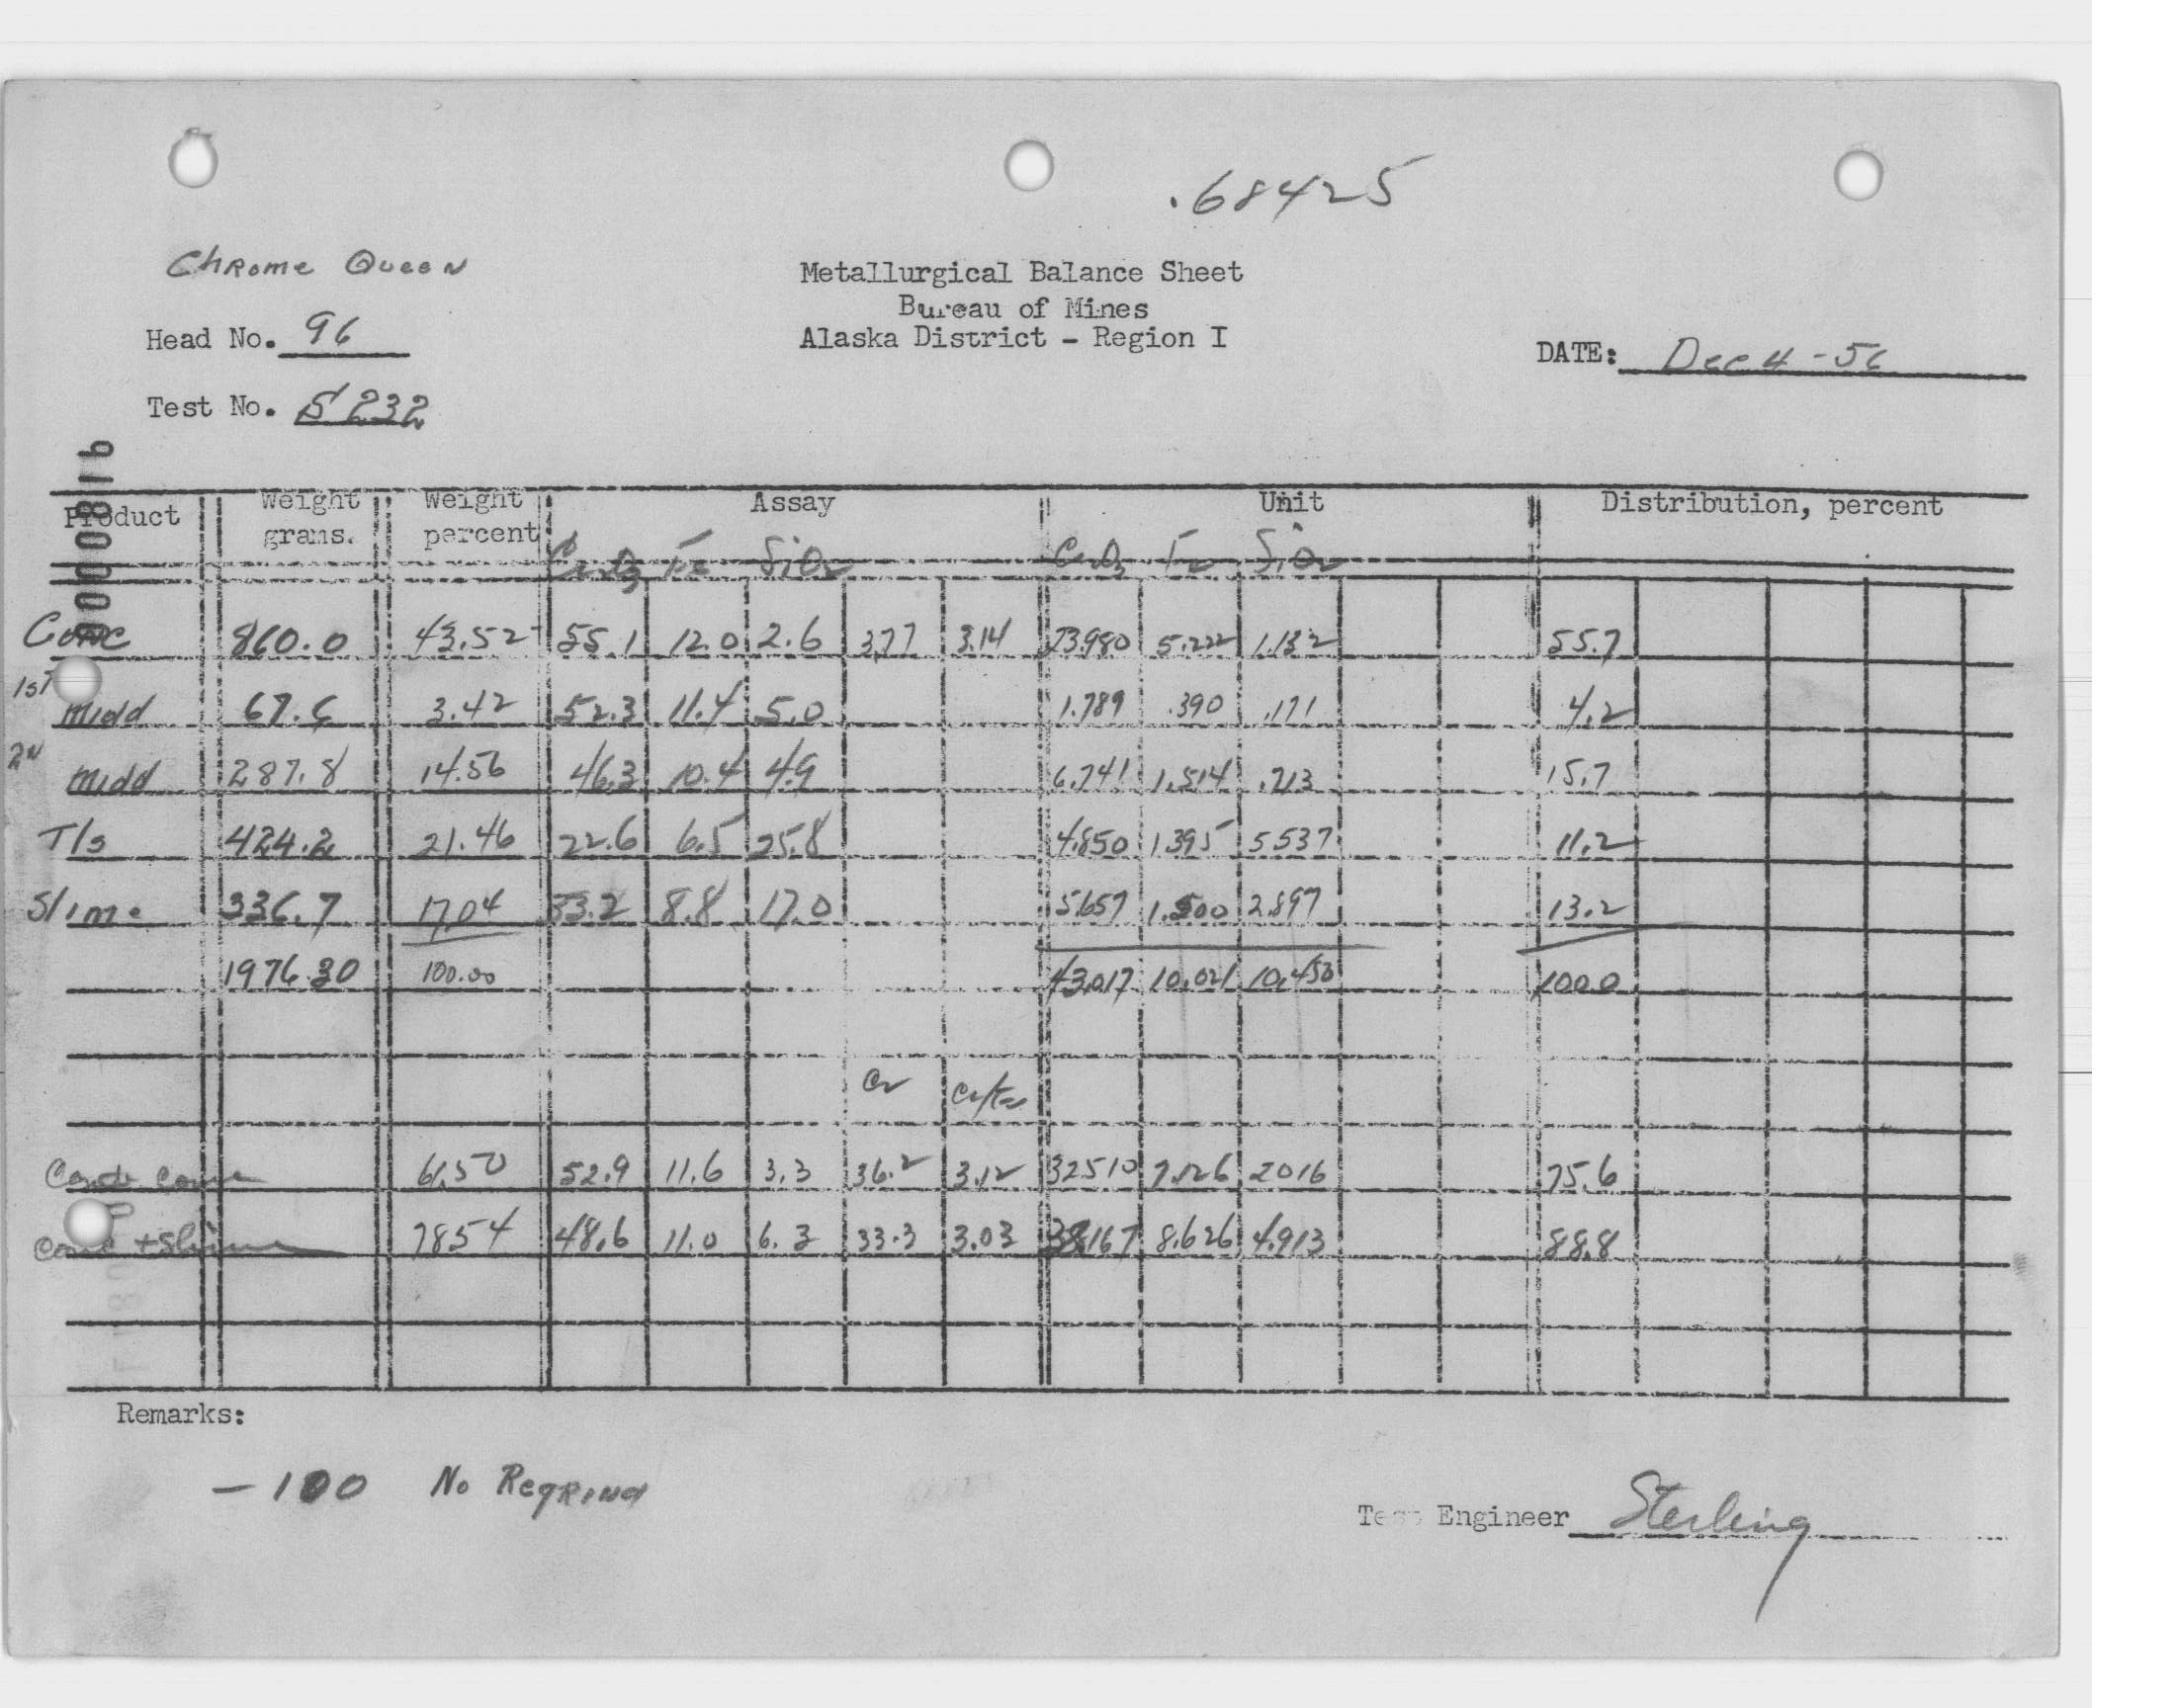 .68425
Chrome Queen
Metallurgical Balance Sheet
Bureau of Mines
Alaska District - Region I
Head No. 96
DATE: Dec 4 - 56
Test No. S 232
Product Weight grams. Weight percent Assay Unit Distribution, percent
Cr2O3 Fe SiO2 Cr2O3 Fe SiO2
Conc 860.0 43.52 55.1 12.0 2.6 3.14 23.980 5.222 1.132 55.7
1st Midd 67.6 3.42 52.3 11.4 5.0 1.789 .390 .171 4.2
2N Midd 287.8 14.56 46.3 10.4 4.9 6.741 1.514 .713 15.7
Tls 424.2 21.46 22.6 6.5 25.8 4.850 1.395 5.537 11.2
Slime 336.7 17.04 33.2 8.8 17.0 5.657 1.500 2.897 13.2
1976.30 100.00 43.017 10.021 10.450 100.0
Cr Cr/Fe
61.50 52.9 11.6 3.3 36.2 3.12 32510 7.126 2016 75.6
Conc + Slime 7854 48.6 11.0 6.3 33.3 3.03 38.167 8.626 4.913 88.8
Remarks:
- 100 No Regrind
Test Engineer Sterling